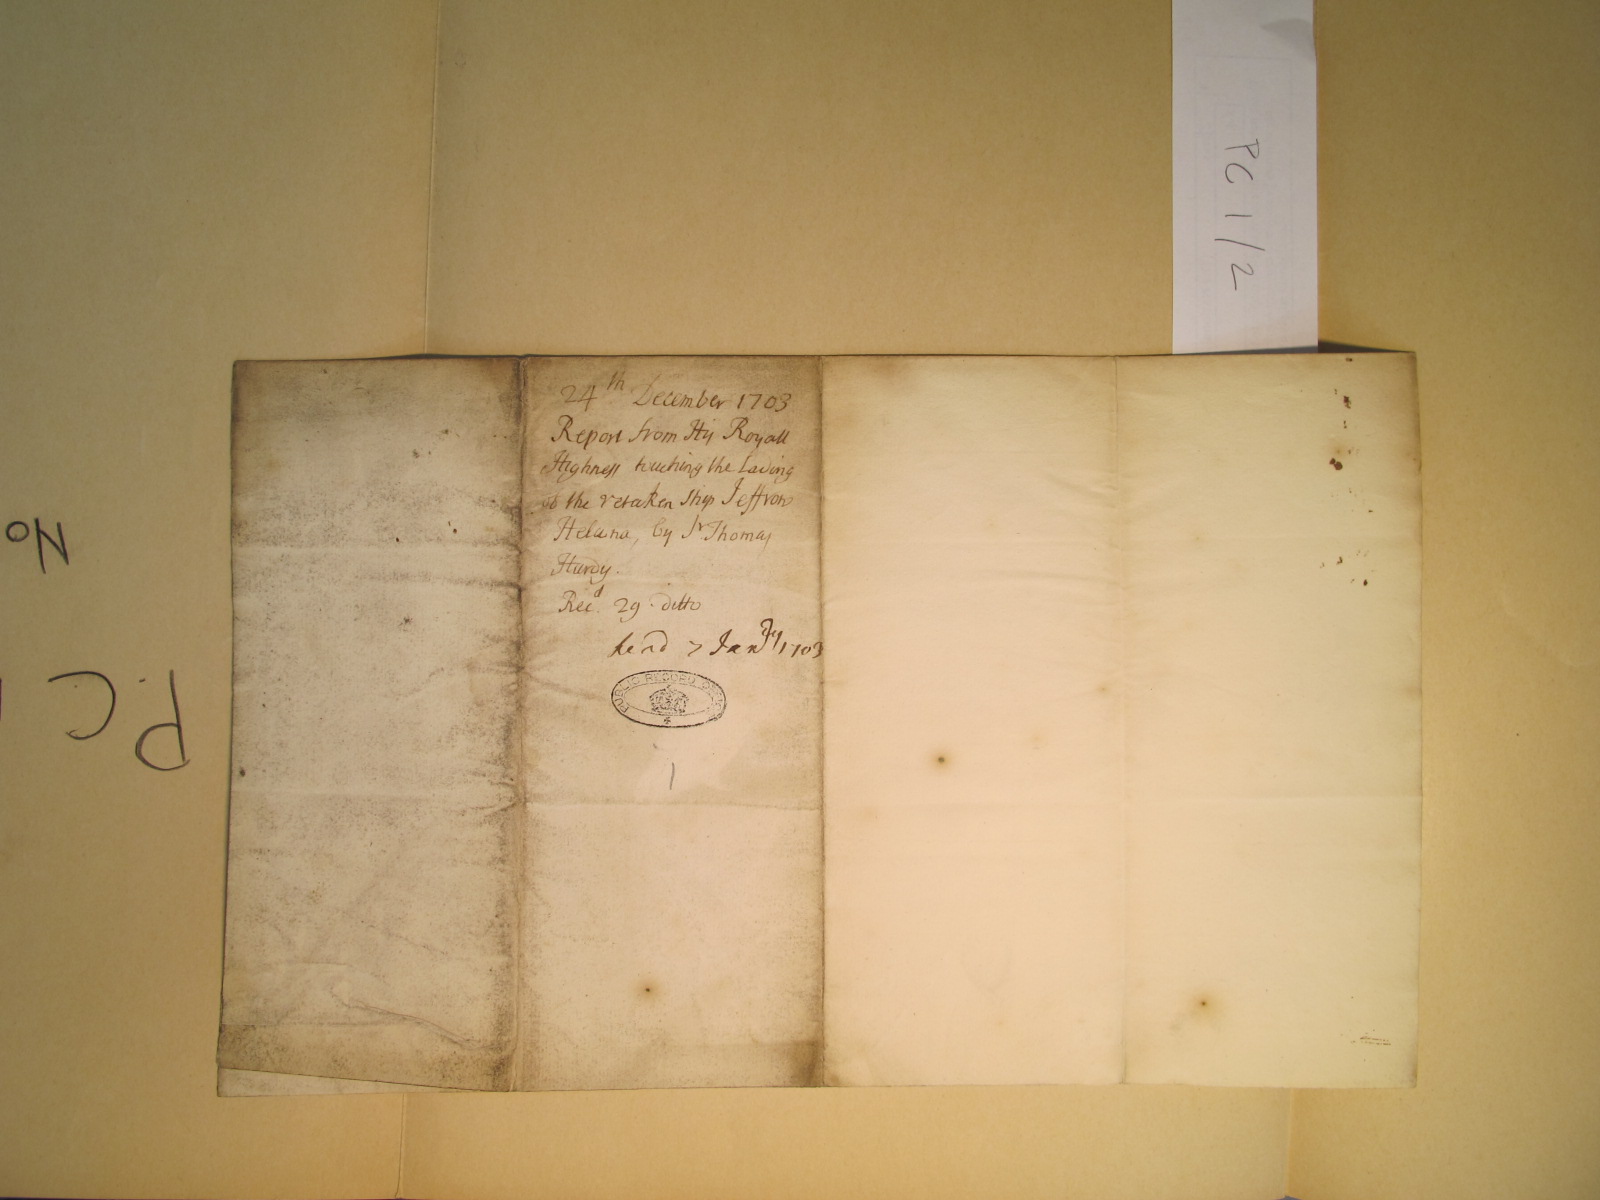 24th December 1703
Report from His Royall
Highness touching the Lading
of the retaken Ship Jeffrow
Helena, by Sr. Thomas
Hardy.
Recd. 29. ditto
read 7 Janry 1703
PUBLIC RECORD OFFICE
1
PC 1/2
No
PC